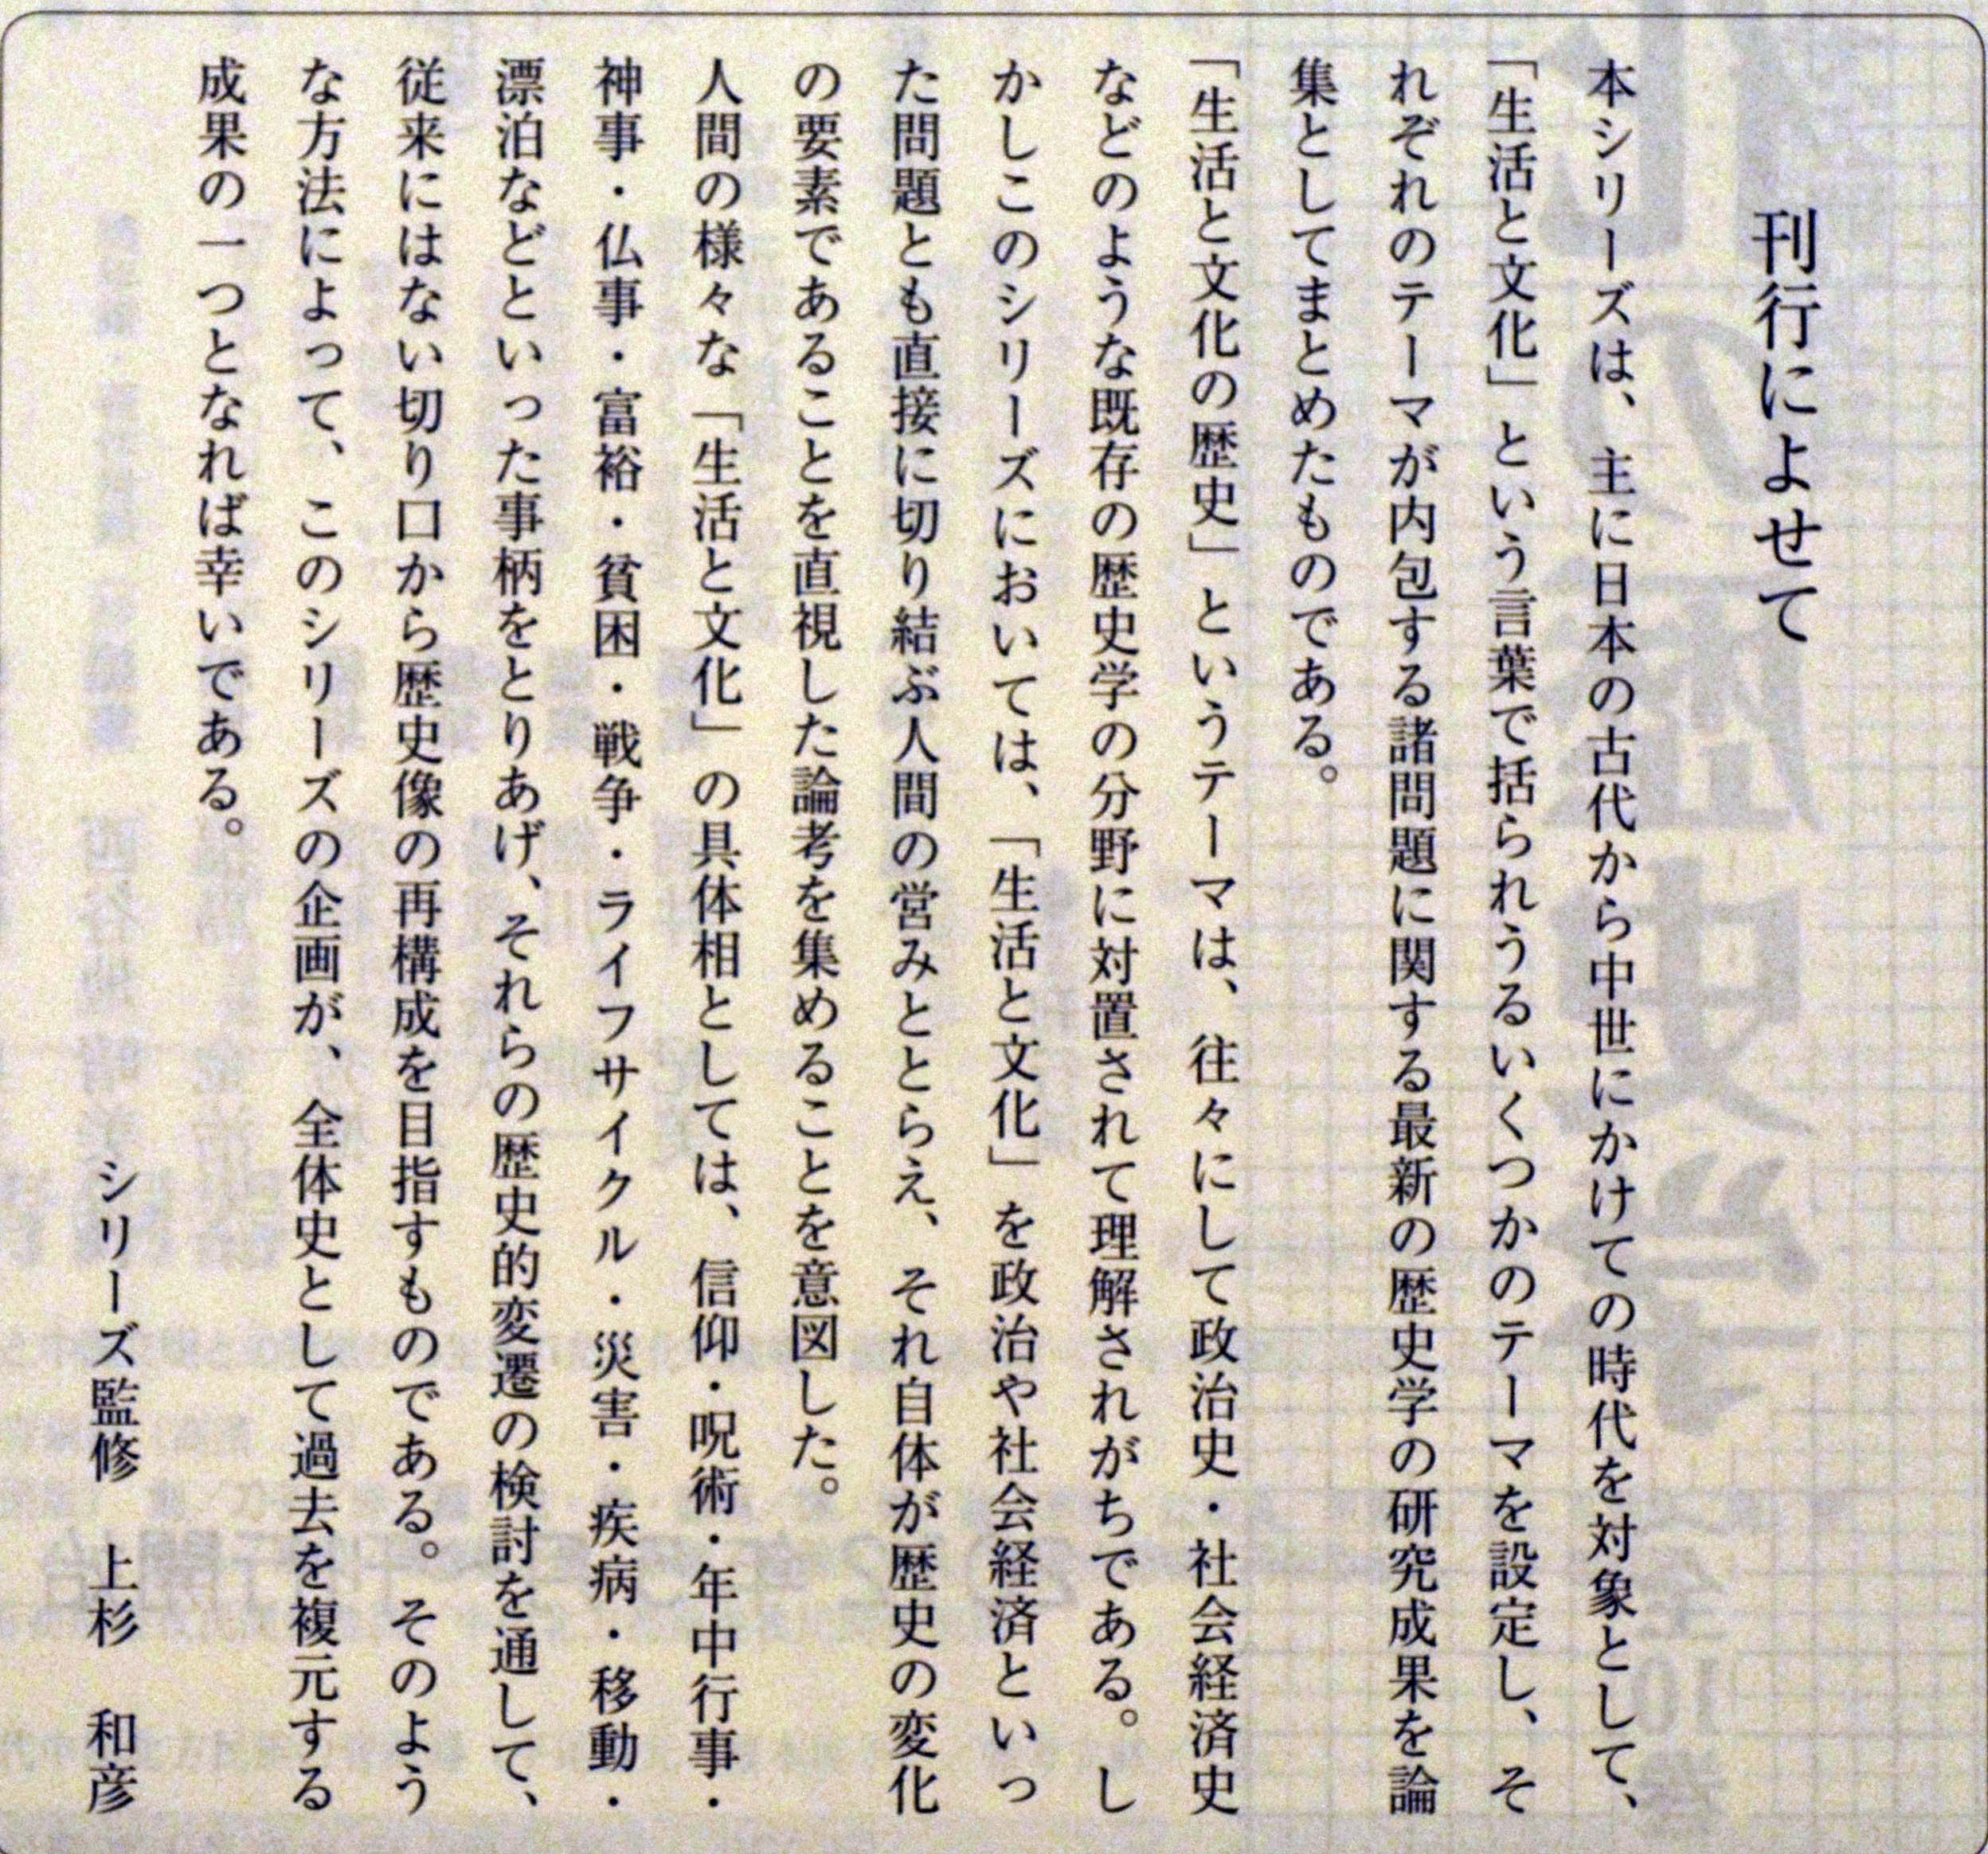 刊行によせて
本シリーズは、主に日本の古代から中世にかけての時代を対象として、
「生活と文化」という言葉で括られうるいくつかのテーマを設定し、そ
れぞれのテーマが内包する諸問題に関する最新の歴史学の研究成果を論
集としてまとめたものである。
「生活と文化の歴史」というテーマは、往々にして政治史・社会経済史
などのような既存の歴史学の分野に対置されて理解されがちである。し
かしこのシリーズにおいては、「生活と文化」を政治や社会経済といっ
た問題とも直接に切り結ぶ人間の営みととらえ、それ自体が歴史の変化
の要素であることを直視した論考を集めることを意図した。
人間の様々な「生活と文化」の具体相としては、信仰・呪術・年中行事・
神事・仏事・富裕・貧困・戦争・ライフサイクル・災害・疾病・移動・
漂泊などといった事柄をとりあげ、それらの歴史的変遷の検討を通して、
従来にはない切り口から歴史像の再構成を目指すものである。そのよう
な方法によって、このシリーズの企画が、全体史として過去を複元する
成果の一つとなれば幸いである。
シリーズ監修 上杉 和彦